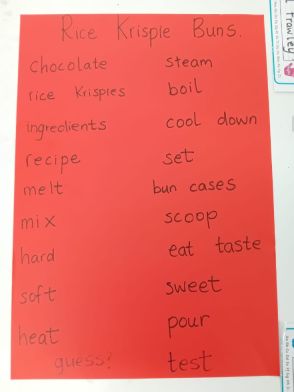 Rice Krispie Buns.
Chocolate
rice Krispies
ingredients
recipe
melt
mix
hard
soft
heat
guess?
steam
boil
cool down
set
bun cases
scoop
eat taste
sweet
pour
test
Frawley